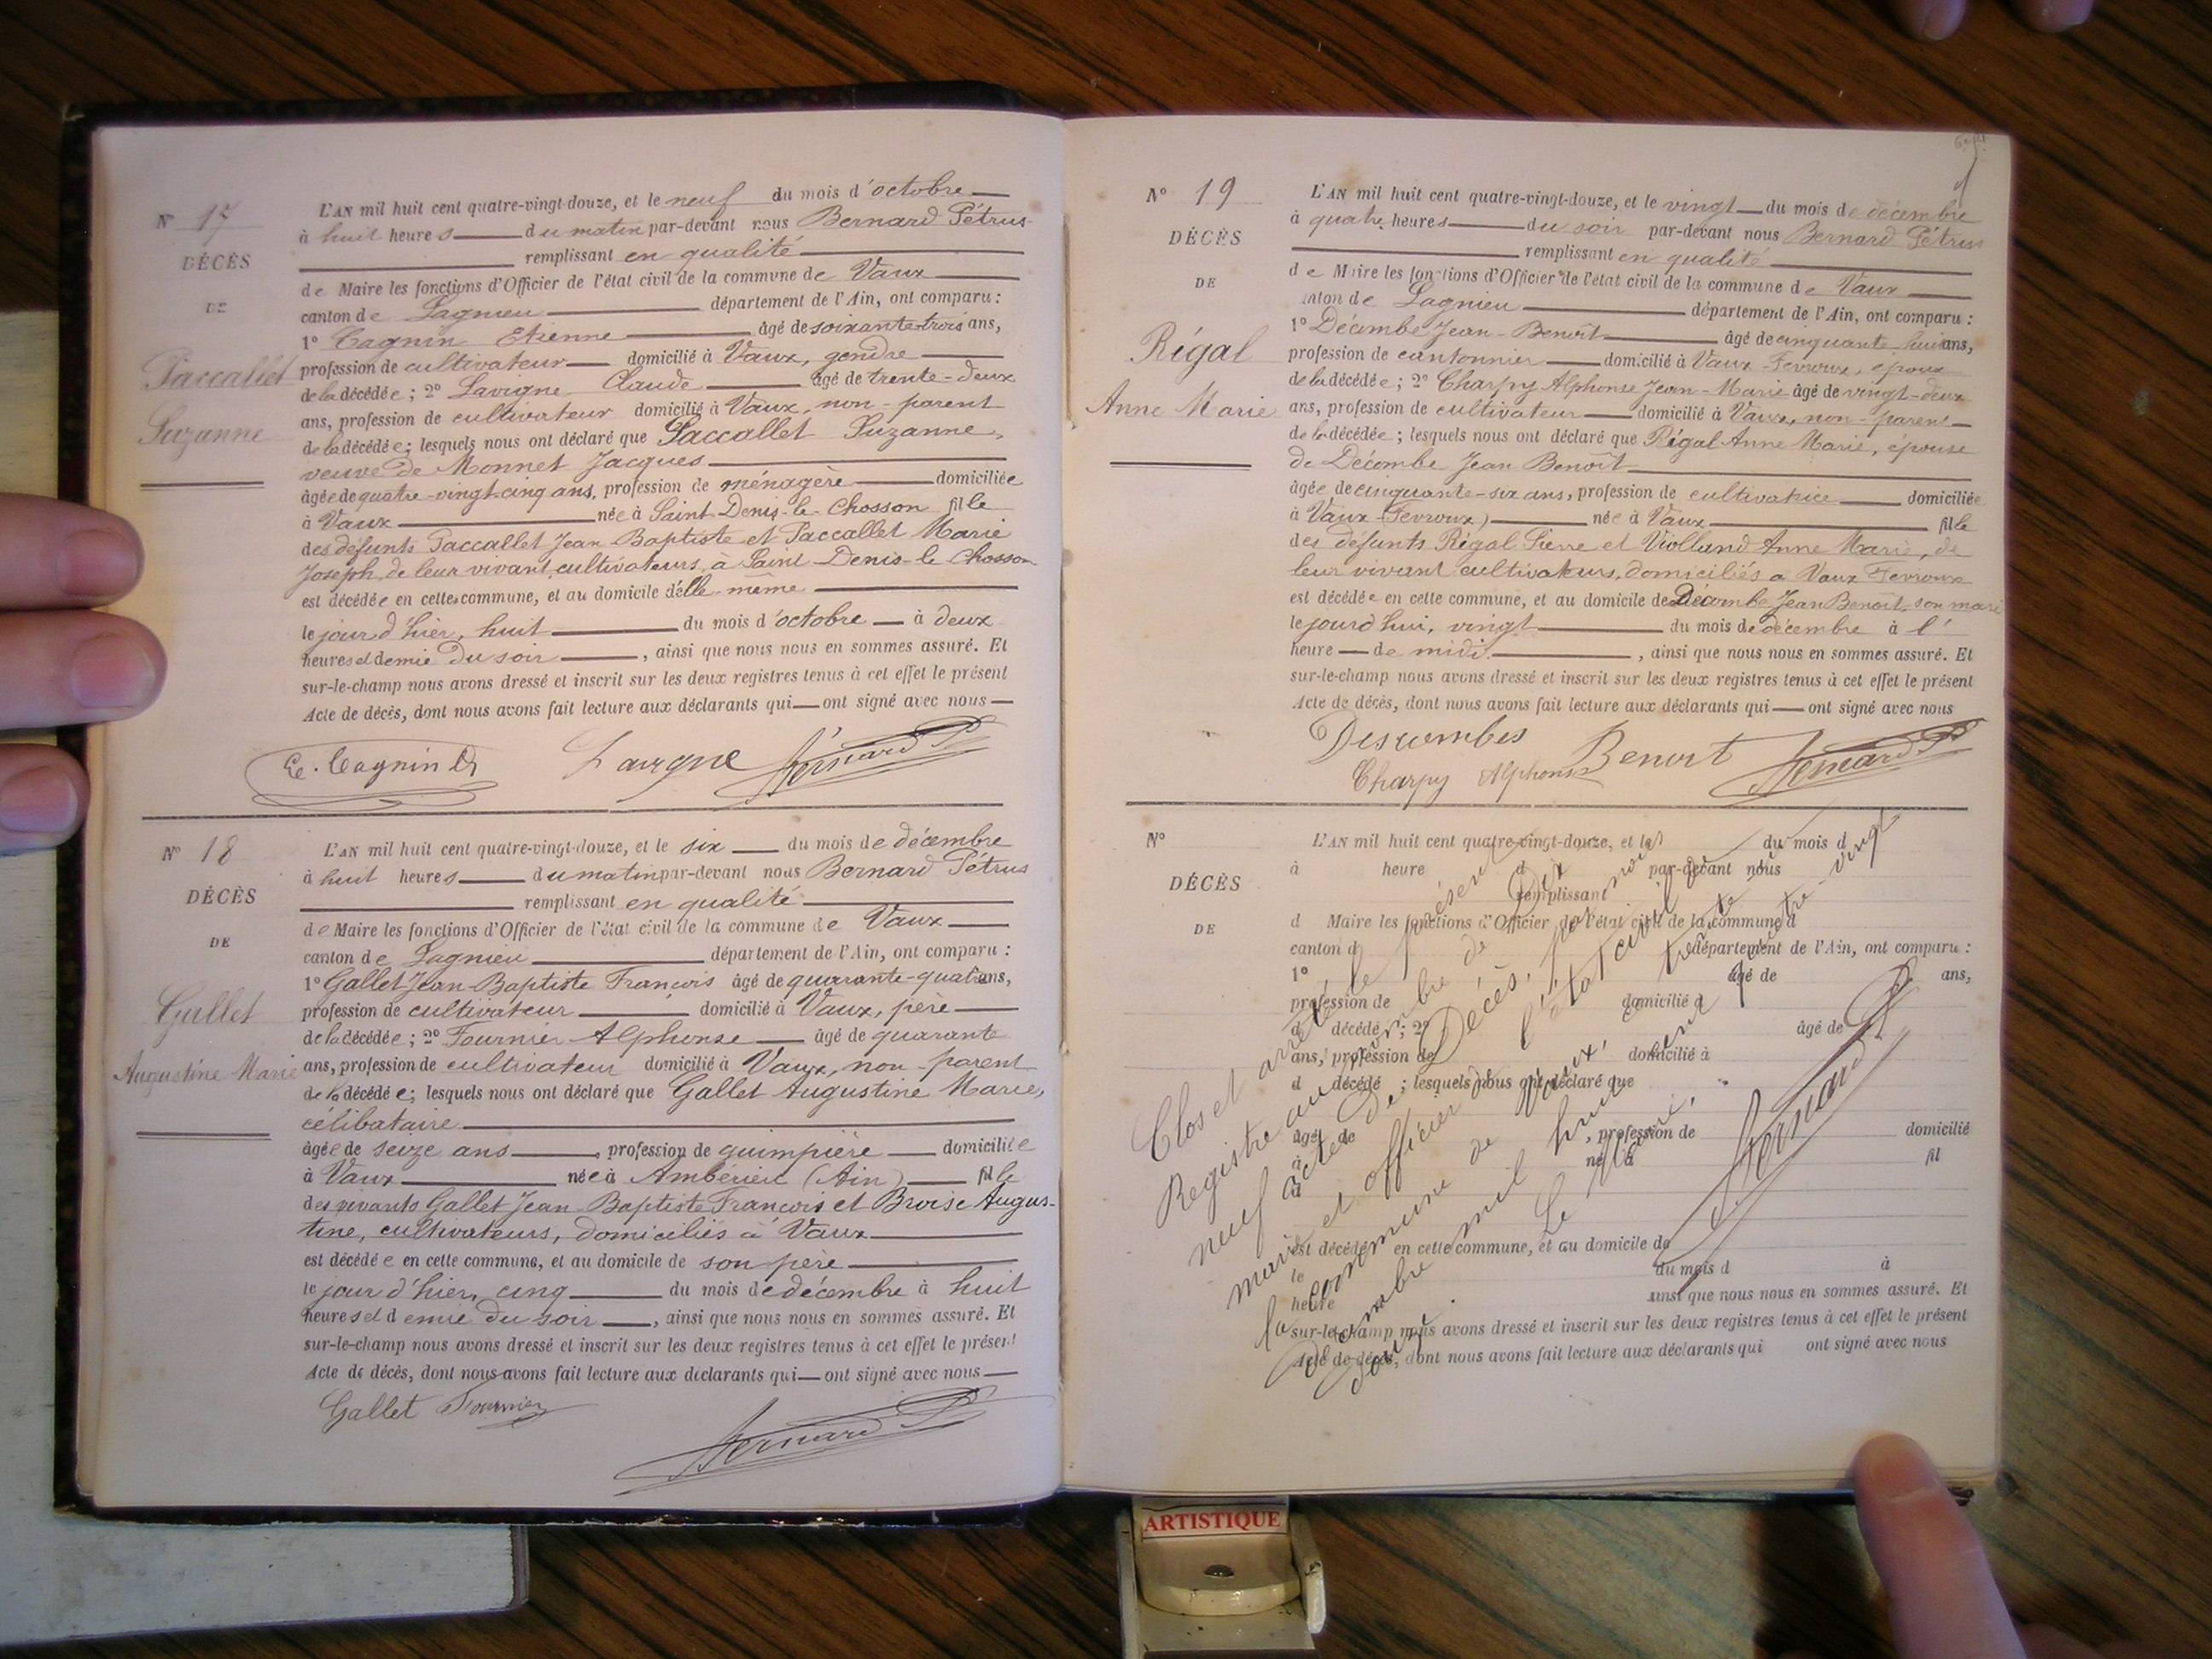 N° 17
DÉCÈS
DE
Paccallet
Suzanne
L'AN mil huit cent quatre-vingt-douze, et le neuf du mois d'octobre
à huit heures du matin par-devant nous Bernard Pétrus
remplissant en qualité
de Maire les fonctions d'Officier de l'état civil de la commune de Vaux
canton de Lagnieu département de l'Ain, ont comparu :
1° Cagnin Etienne âgé de soixante-trois ans,
profession de cultivateur domicilié à Vaux, gendre
de la décédée ; 2° Lavigne Claude âgé de trente-deux
ans, profession de cultivateur domicilié à Vaux, non-parent
de la décédée ; lesquels nous ont déclaré que Paccallet Suzanne,
veuve de Monnet Jacques
âgée de quatre-vingt-cinq ans, profession de ménagère domiciliée
à Vaux née à Saint-Denis-le-Chosson fille
des défunts Paccallet Jean Baptiste et Paccallet Marie
Joseph, de leur vivant cultivateurs, à Saint-Denis-le-Chosson
est décédée en cette commune, et au domicile d'elle-même
le jour d'hier, huit du mois d'octobre à deux
heures et demie du soir, ainsi que nous nous en sommes assuré. Et
sur-le-champ nous avons dressé et inscrit sur les deux registres tenus à cet effet le présent
Acte de décès, dont nous avons fait lecture aux déclarants qui ont signé avec nous
E. Cagnin Lavigne Bernard P
N° 18
DÉCÈS
DE
Gallet
Augustine Marie
L'AN mil huit cent quatre-vingt-douze, et le six du mois de décembre
à huit heures du matin par-devant nous Bernard Pétrus
remplissant en qualité
de Maire les fonctions d'Officier de l'état civil de la commune de Vaux
canton de Lagnieu département de l'Ain, ont comparu :
1° Gallet Jean-Baptiste François âgé de quarante-quatre ans,
profession de cultivateur domicilié à Vaux, père
de la décédée ; 2° Fournier Alphonse âgé de quarante
ans, profession de cultivateur domicilié à Vaux, non-parent
de la décédée ; lesquels nous ont déclaré que Gallet Augustine Marie,
célibataire
âgée de seize ans, profession de guimpière domiciliée
à Vaux née à Ambérieu (Ain) fille
des vivants Gallet Jean Baptiste François et Broise Augus-
tine, cultivateurs, domiciliés à Vaux
est décédée en cette commune, et au domicile de son père
le jour d'hier, cinq du mois de décembre à huit
heures et demie du soir, ainsi que nous nous en sommes assuré. Et
sur-le-champ nous avons dressé et inscrit sur les deux registres tenus à cet effet le présent
Acte de décès, dont nous avons fait lecture aux déclarants qui ont signé avec nous
Gallet Fournier
Bernard P
N° 19
DÉCÈS
DE
Régal
Anne Marie
L'AN mil huit cent quatre-vingt-douze, et le vingt du mois de décembre
à quatre heures du soir par-devant nous Bernard Pétrus
remplissant en qualité
de Maire les fonctions d'Officier de l'état civil de la commune de Vaux
canton de Lagnieu département de l'Ain, ont comparu :
1° Décombe Jean-Benoît âgé de cinquante-huit ans,
profession de cantonnier domicilié à Vaux-Fevroux, époux
de la décédée ; 2° Charpy Alphonse Jean-Marie âgé de vingt-deux
ans, profession de cultivateur domicilié à Vaux, non-parent
de la décédée ; lesquels nous ont déclaré que Régal Anne Marie, épouse
de Décombe Jean Benoît
âgée de cinquante-six ans, profession de cultivatrice domiciliée
à Vaux (Fevroux) née à Vaux fille
des défunts Régal Pierre et Violland Anne Marie, de
leur vivant cultivateurs, domiciliés à Vaux Fevroux
est décédée en cette commune, et au domicile de Décombe Jean Benoît, son mari
le jourd'hui, vingt du mois de décembre à l'
heure de midi, ainsi que nous nous en sommes assuré. Et
sur-le-champ nous avons dressé et inscrit sur les deux registres tenus à cet effet le présent
Acte de décès, dont nous avons fait lecture aux déclarants qui ont signé avec nous
Descombes Benoit Bernard P
Charpy Alphonse
N°
DÉCÈS
DE
L'AN mil huit cent quatre-vingt-douze, et le du mois d
à heure d par-devant nous
remplissant
d Maire les fonctions d'Officier de l'état civil de la commune d
canton d département de l'Ain, ont comparu :
1° âgé de ans,
profession de domicilié à
d décédé ; 2° âgé de
ans, profession de domicilié à
d décédé ; lesquels nous ont déclaré que
âgé de , profession de domicilié
à né à fil
d
est décédé en cette commune, et au domicile de
le du mois d à
heure ainsi que nous nous en sommes assuré. Et
sur-le-champ nous avons dressé et inscrit sur les deux registres tenus à cet effet le présent
Acte de décès, dont nous avons fait lecture aux déclarants qui ont signé avec nous
Clos et arrêté le présent
Registre au nombre de Dix
neuf actes de Décès, par nous
maire et officier de l'état civil de
la commune de Vaux, le trente et un
décembre mil huit cent quatre-vingt
douze.
Le Maire,
Bernard P
ARTISTIQUE